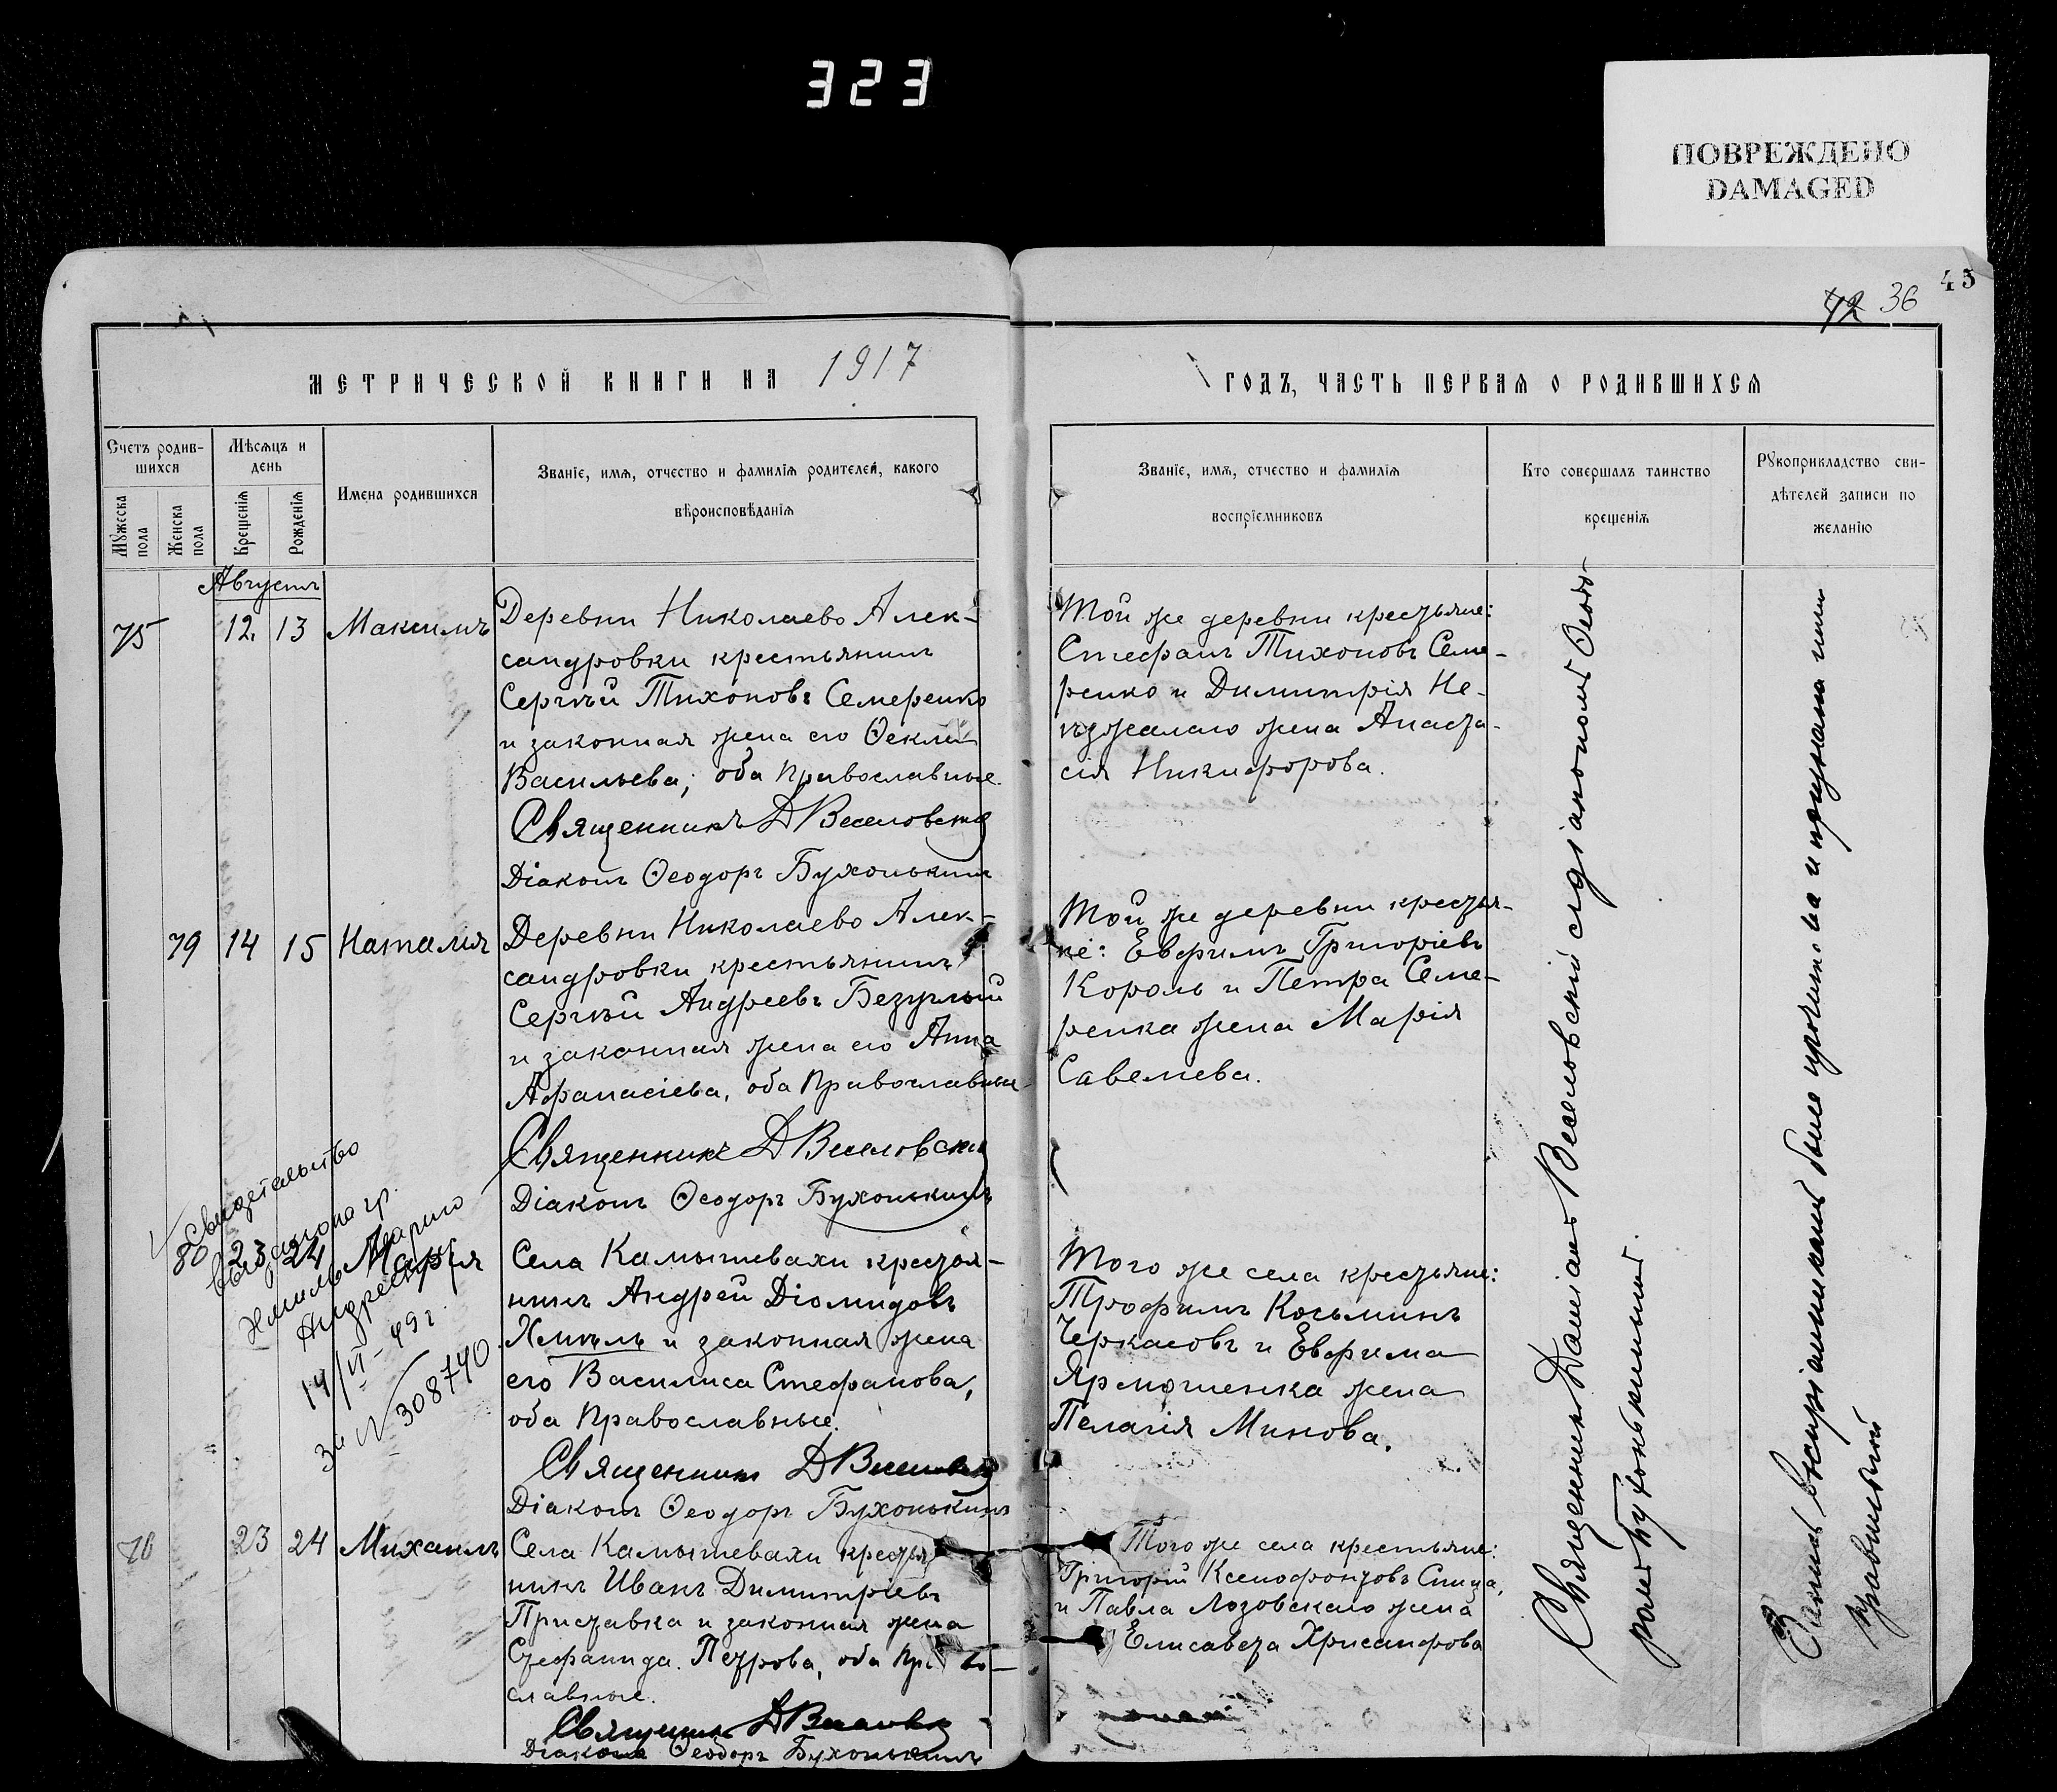 323
ПОВРЕЖДЕНО
DAMAGED
45
42 36
МЕТРИЧЕСКОЙ КНИГИ НА 1917
ГОДЪ, ЧАСТЬ ПЕРВАЯ О РОДИВШИХСЯ
Счетъ родив-
шихся
Мужеска
пола
Женска
пола
Мѣсяцъ и
день
Крещенія
Рожденія
Имена родившихся
Званіе, имя, отчество и фамилія родителей, какого
вѣроисповѣданія
Званіе, имя, отчество и фамилія
воспріемниковъ
Кто совершалъ таинство
крещенія
Рукоприкладство сви-
дѣтелей записи по
желанію
Августъ
75 12. 13 Максимъ
Деревни Николаево Алек-
сандровки крестьянинъ
Сергѣй Тихоновъ Семеренко
и законная жена его Ѳекла
Васильева; оба православные
Священникъ Д Веселовскій
Діаконъ Ѳеодоръ Бухонькинъ
Той же деревни крестьяне:
Стефанъ Тихоновъ Семе-
ренко и Димитрія Не-
ѣзжалаго жена Анаста-
сія Никифорова.
79 14 15 Наталія
Деревни Николаево Алек-
сандровки крестьянинъ
Сергѣй Андреевъ Безуглый
и законная жена его Анна
Афанасіева, оба православные
Священникъ Д Веселовскій
Діаконъ Ѳеодоръ Бухонькинъ
Той же деревни крестья-
не: Евфимъ Григоріевъ
Король и Петра Семе-
ренка жена Марія
Савелиева.
80 23 24 Марія
Свидетельство
выдано на гр.
Хмиль Марию
Андреевну
14/VI-49 г.
За N 308740.
Села Камышевахи крестья-
нинъ Андрей Діомидовъ
Хмѣль и законная жена
его Василиса Стефанова,
оба православные.
Священникъ Д Веселовскій
Діаконъ Ѳеодоръ Бухонькинъ
Того же села крестьяне:
Трофимъ Косьминъ
Черкасовъ и Евфима
Ярмошенка жена
Пелагія Минова.
70 23 24 Михаилъ
Села Камышевахи крестья
нинъ Иванъ Димитріевъ
Приставка и законная жена
Стефанида Петрова, оба право-
славные.
Священникъ Д Веселовскій
Діаконъ Ѳеодоръ Бухонькинъ
Того же села крестьяне:
Григорій Ксенофонтовъ Спица,
и Павла Лозовскаго жена
Елисавета Хрисанфова
Священникъ Даміанъ Веселовскій съ діакономъ Ѳеодо-
ромъ Бухонькинымъ.
воспріемниками были